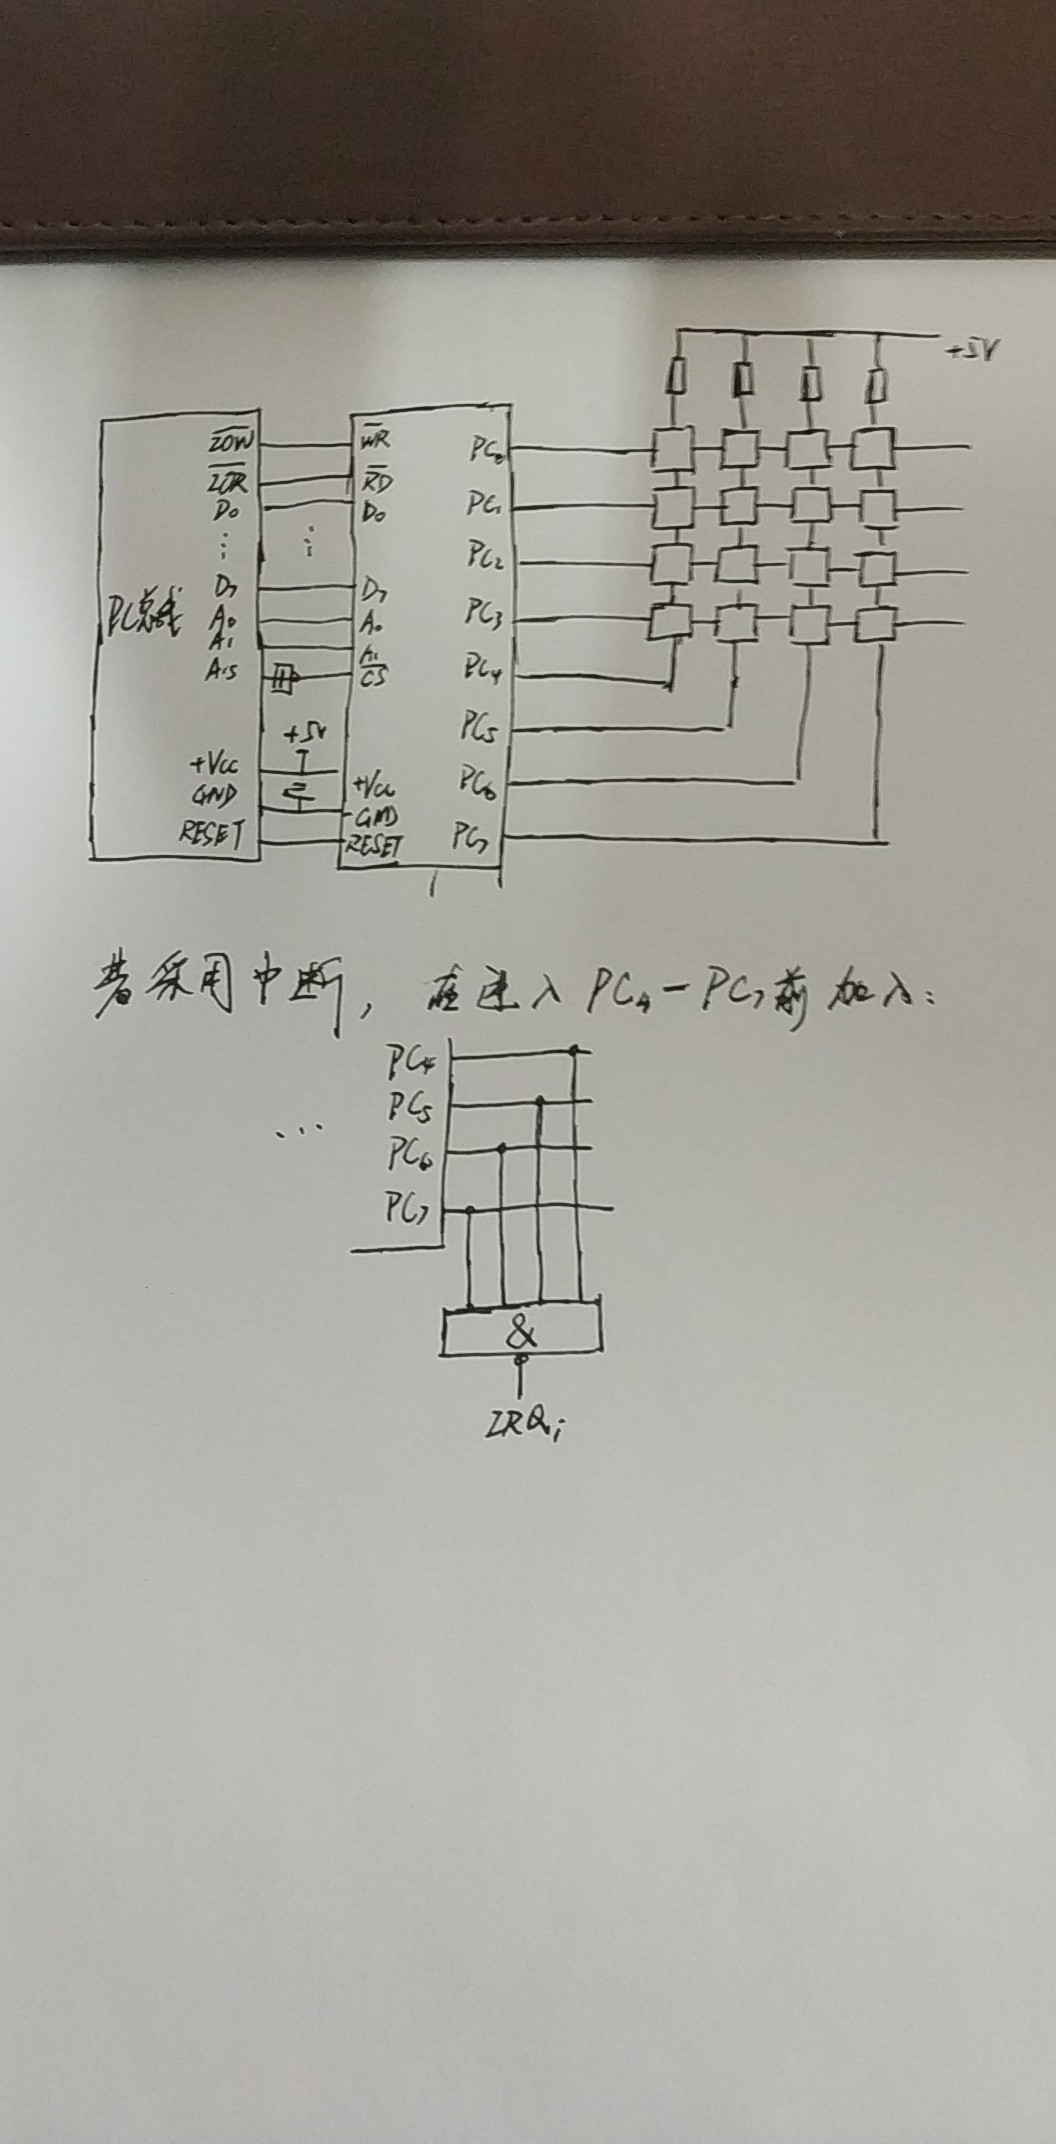 +5V
PC总线
IOW
IOR
D₀
⋮
D₇
A₀
A₁
A₁₅
+Vcc
GND
RESET
⋮
+5V
WR
RD
D₀
D₇
A₀
A₁
CS
+Vcc
GND
RESET
PC₀
PC₁
PC₂
PC₃
PC₄
PC₅
PC₆
PC₇
若采用中断，在进入PC₄-PC₇前加入：
...
PC₄
PC₅
PC₆
PC₇
&
IRQᵢ